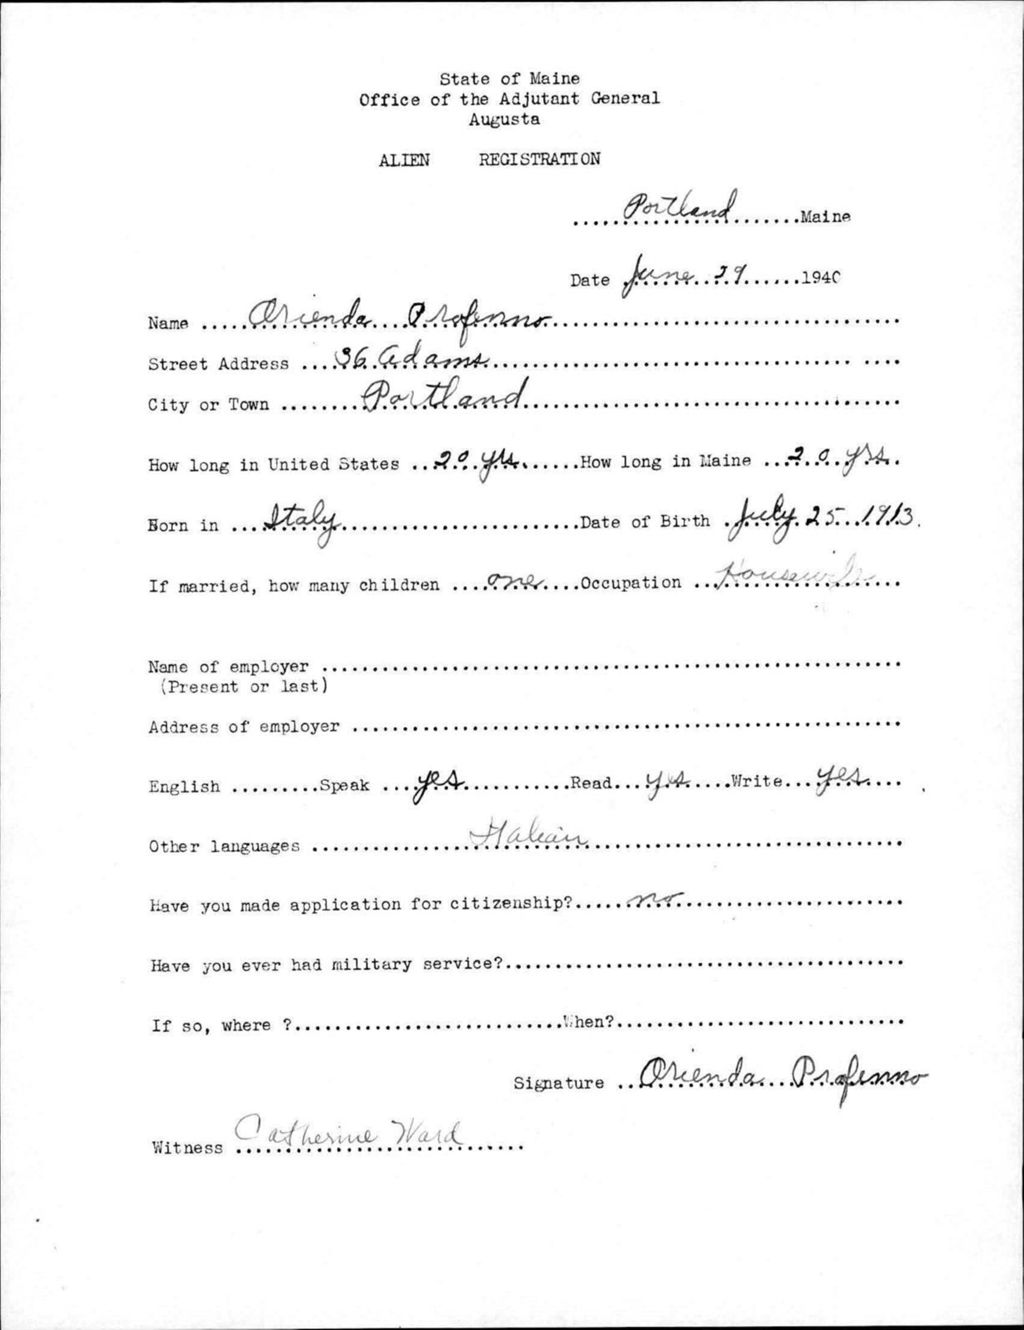 State of Maine
Office of the Adjutant General
Augusta
ALIEN REGISTRATION
Portland Maine
Date June 29 1940
Name Orienda Profenno
Street Address 36 Adams
City or Town Portland
How long in United States 20 yrs How long in Maine 20 yrs
Born in Italy Date of Birth July 25 1913.
If married, how many children one Occupation Housewife
Name of employer
(Present or last)
Address of employer
English Speak yes Read yes Write yes
Other languages Italian
Have you made application for citizenship? no
Have you ever had military service?
If so, where ? When?
Signature Orienda Profenno
Witness Catherine Ward